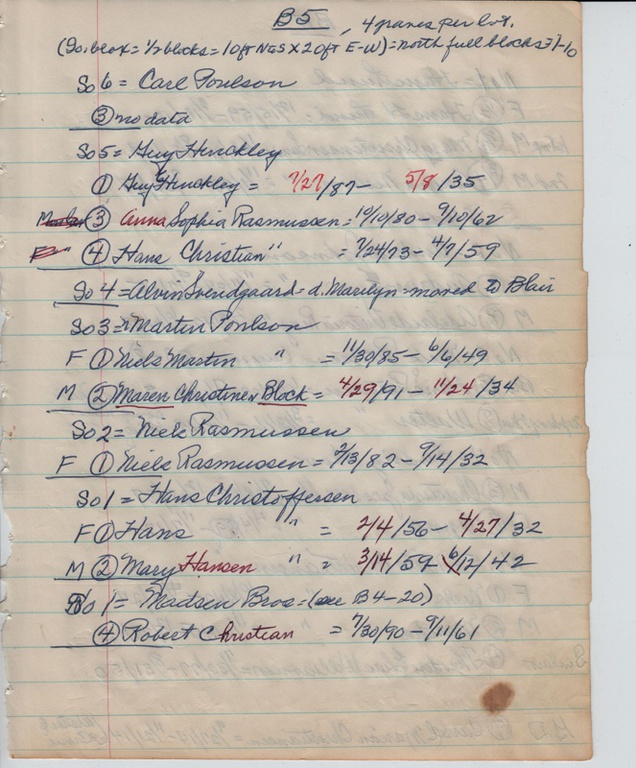 B5, 4 graves per lot.
(So. blox = 1/2 blocks = 10ft N&S X 20ft E-W) = north full blocks 7-10
So 6 = Carl Poulson
③ no data
So 5 = Guy Hinckley
① Guy Hinckley = 7/27/87 - 5/8/35
③ Anna Sophia Rasmussen = 10/10/80 - 9/10/62
④ Hans Christian " = 7/24/73 - 4/7/59
So 4 = Alvin Svendgaard = d. Marilyn = moved to Blair
So 3 = Martin Poulson
F ① Niels Martin " = 11/30/85 - 6/6/49
M ② Maren Christine Block = 4/29/91 - 11/24/34
So 2 = Niels Rasmussen
F ① Niels Rasmussen = 2/13/82 - 9/14/32
So 1 = Hans Christoffersen
F ① Hans " = 2/4/56 - 4/27/32
M ② Mary Hansen " = 3/14/59 6/12/42
No 1 = Madsen Bros = (see B4-20)
④ Robert Christian = 7/30/90 - 9/11/61